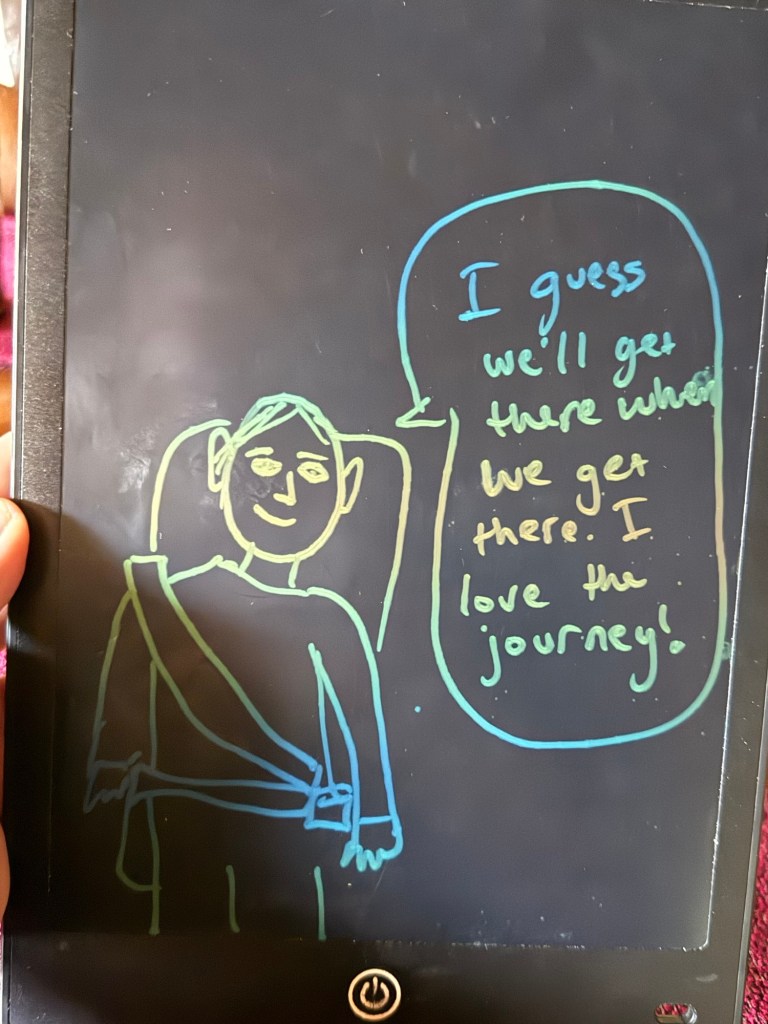 I guess
we'll get
there when
we get
there. I
love the
journey!